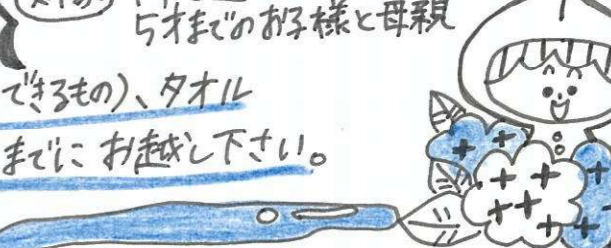 5才までのお子様と母親
できるもの)、タオル
までに お越し下さい。